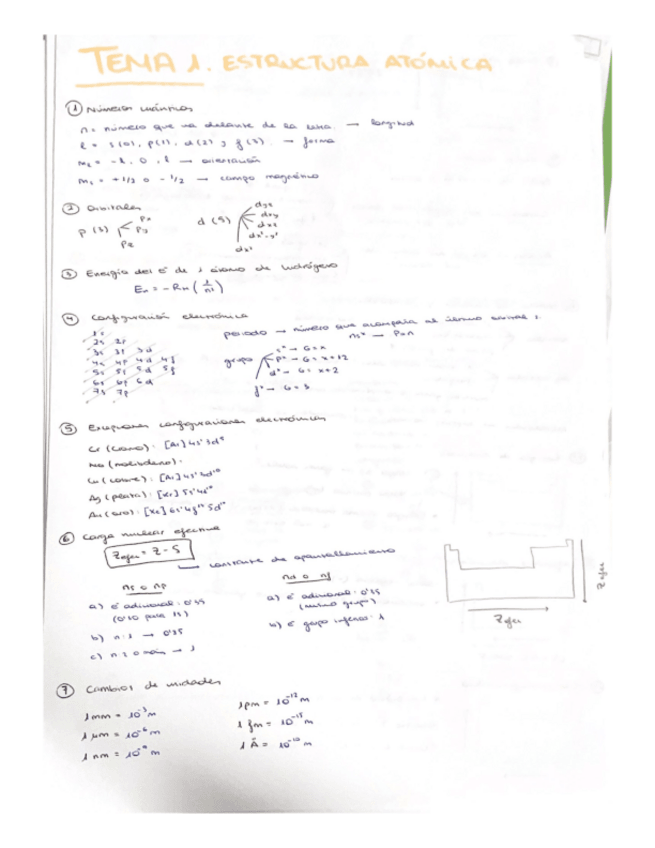 TEMA 1. ESTRUCTURA ATÓMICA
① Números cuánticos
n = número que va delante de la letra → longitud
l = s(0), p(1), d(2) y f(3). → forma
m₂ = -l, 0, l → orientación
m₁ = +1/2 o -1/2 → campo magnético
② Orbitales
p (3) px py pz
d (5) dyz dxy dxz dx²-y² dz²
③ Energía del e⁻ de 1 átomo de hidrógeno
En = -RH (1/n²)
④ Configuración electrónica
1s
2s 2p
3s 3p 3d
4s 4p 4d 4f
5s 5p 5d 5f
6s 6p 6d
7s 7p
periodo → número que acompaña al último orbital s.
nsˣ → P=n
grupo
sˣ → G=x
pˣ → G=x+12
dˣ → G=x+2
fˣ → G=3
⑤ Excepciones configuraciones electrónicas
Cr (cromo): [Ar] 4s¹ 3d⁵
Mo (molibdeno):
Cu (cobre): [Ar] 4s¹ 3d¹⁰
Ag (plata): [Kr] 5s¹ 4d¹⁰
Au (oro): [Xe] 6s¹ 4f¹⁴ 5d¹⁰
⑥ Carga nuclear efectiva
Zefec = Z - S
constante de apantallamiento
ns o np
a) e⁻ adicional: 0'35
(0'30 para 1s)
b) n-1 →
c) n-2 o más → 1
nd o nf
a) e⁻ adicional: 0'35
(mismo grupo)
b) e⁻ grupo inferior: 1
Zefec
Zefec
⑦ Cambios de unidades
1 mm = 10⁻³ m
1 μm = 10⁻⁶ m
1 nm = 10⁻⁹ m
1 pm = 10⁻¹² m
1 fm = 10⁻¹⁵ m
1 Å = 10⁻¹⁰ m